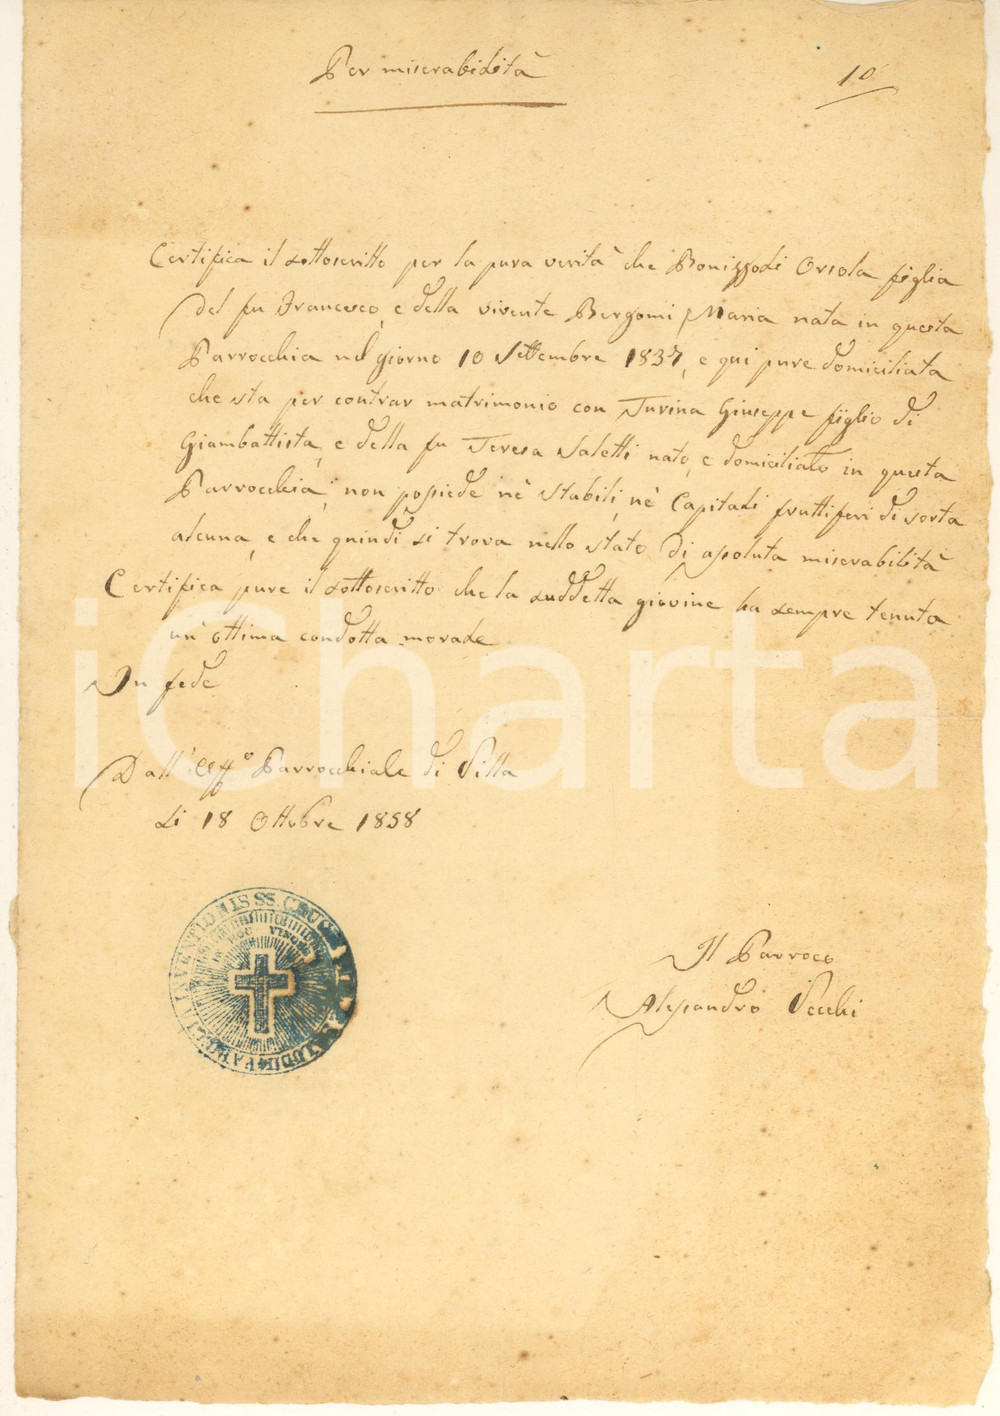 Per miserabilità
10
Certifica il sottoscritto per la pura verità che Bonizzoli Orsola figlia
del fu Francesco, e della vivente Bergomi Maria nata in questa
Parrocchia nel giorno 10 Settembre 1837, e qui pure domiciliata
che sta per contrar matrimonio con Turina Giuseppe figlio di
Giambattista, e della fu Teresa Saletti nato, e domiciliato in questa
Parrocchia, non possiede nè stabili, nè Capitali fruttiferi di sorta
alcuna, e che quindi si trova nello stato di assoluta miserabilità
Certifica pure il sottoscritto che la suddetta giovine ha sempre tenuta
un'ottima condotta morale
In fede
Dall' Uff° Parrocchiale di Villa
li 18 Ottobre 1858
INVENTIONIS SS. CRUC
IN HOC VINCES
Il Parroco
Alessandro Vecchi
iCharta